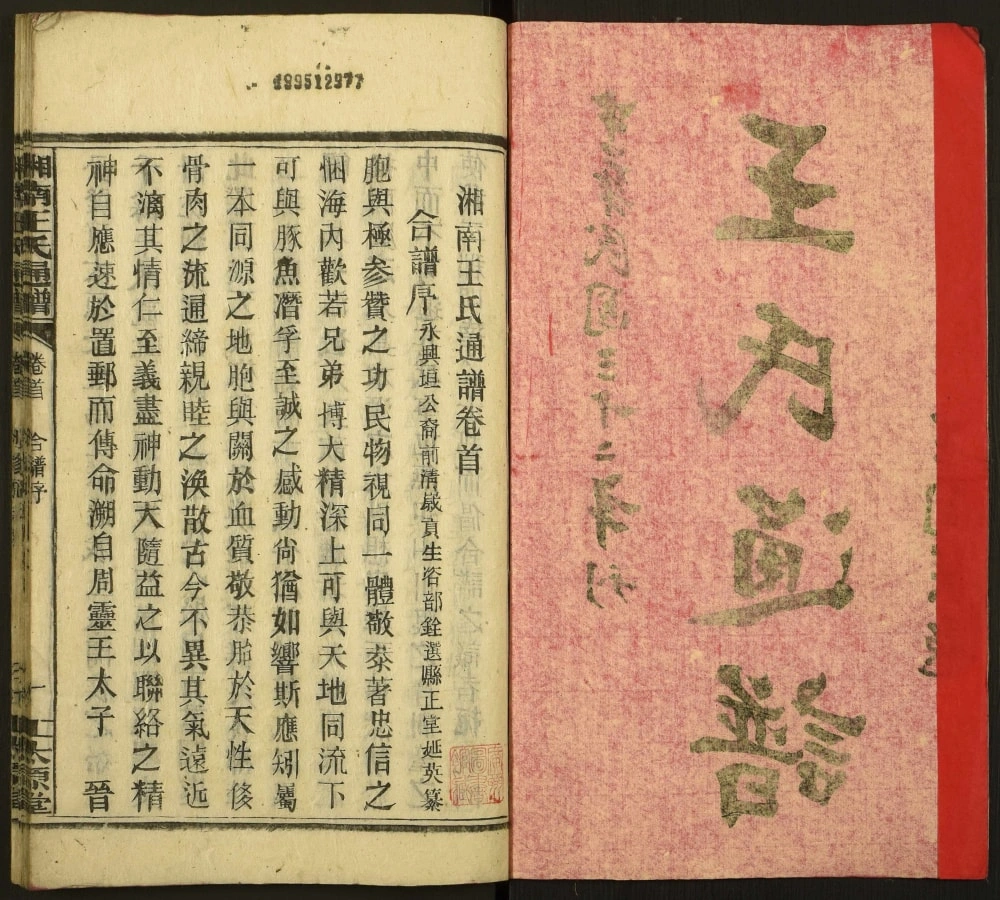 王氏通譜
中華民國三十二年刊
199512977
湘南王氏通譜卷首
合譜序 永興垣公裔前清歲貢生咨部銓選縣正堂延英纂
胞與極參贊之功民物視同一體敬恭著忠信之
悃海內歡若兄弟博大精深上可與天地同流下
可與豚魚潛孚至誠之感動尚猶如響斯應矧屬
一本同源之地胞與關於血質敬恭胎於天性俊
骨肉之流通締親睦之渙散古今不異其氣遠近
不漓其情仁至義盡神動天隨益之以聯絡之精
神自應速於置郵而傳命溯自周靈王太子 晉
湘南王氏通譜 卷首 合譜序 一 太原堂